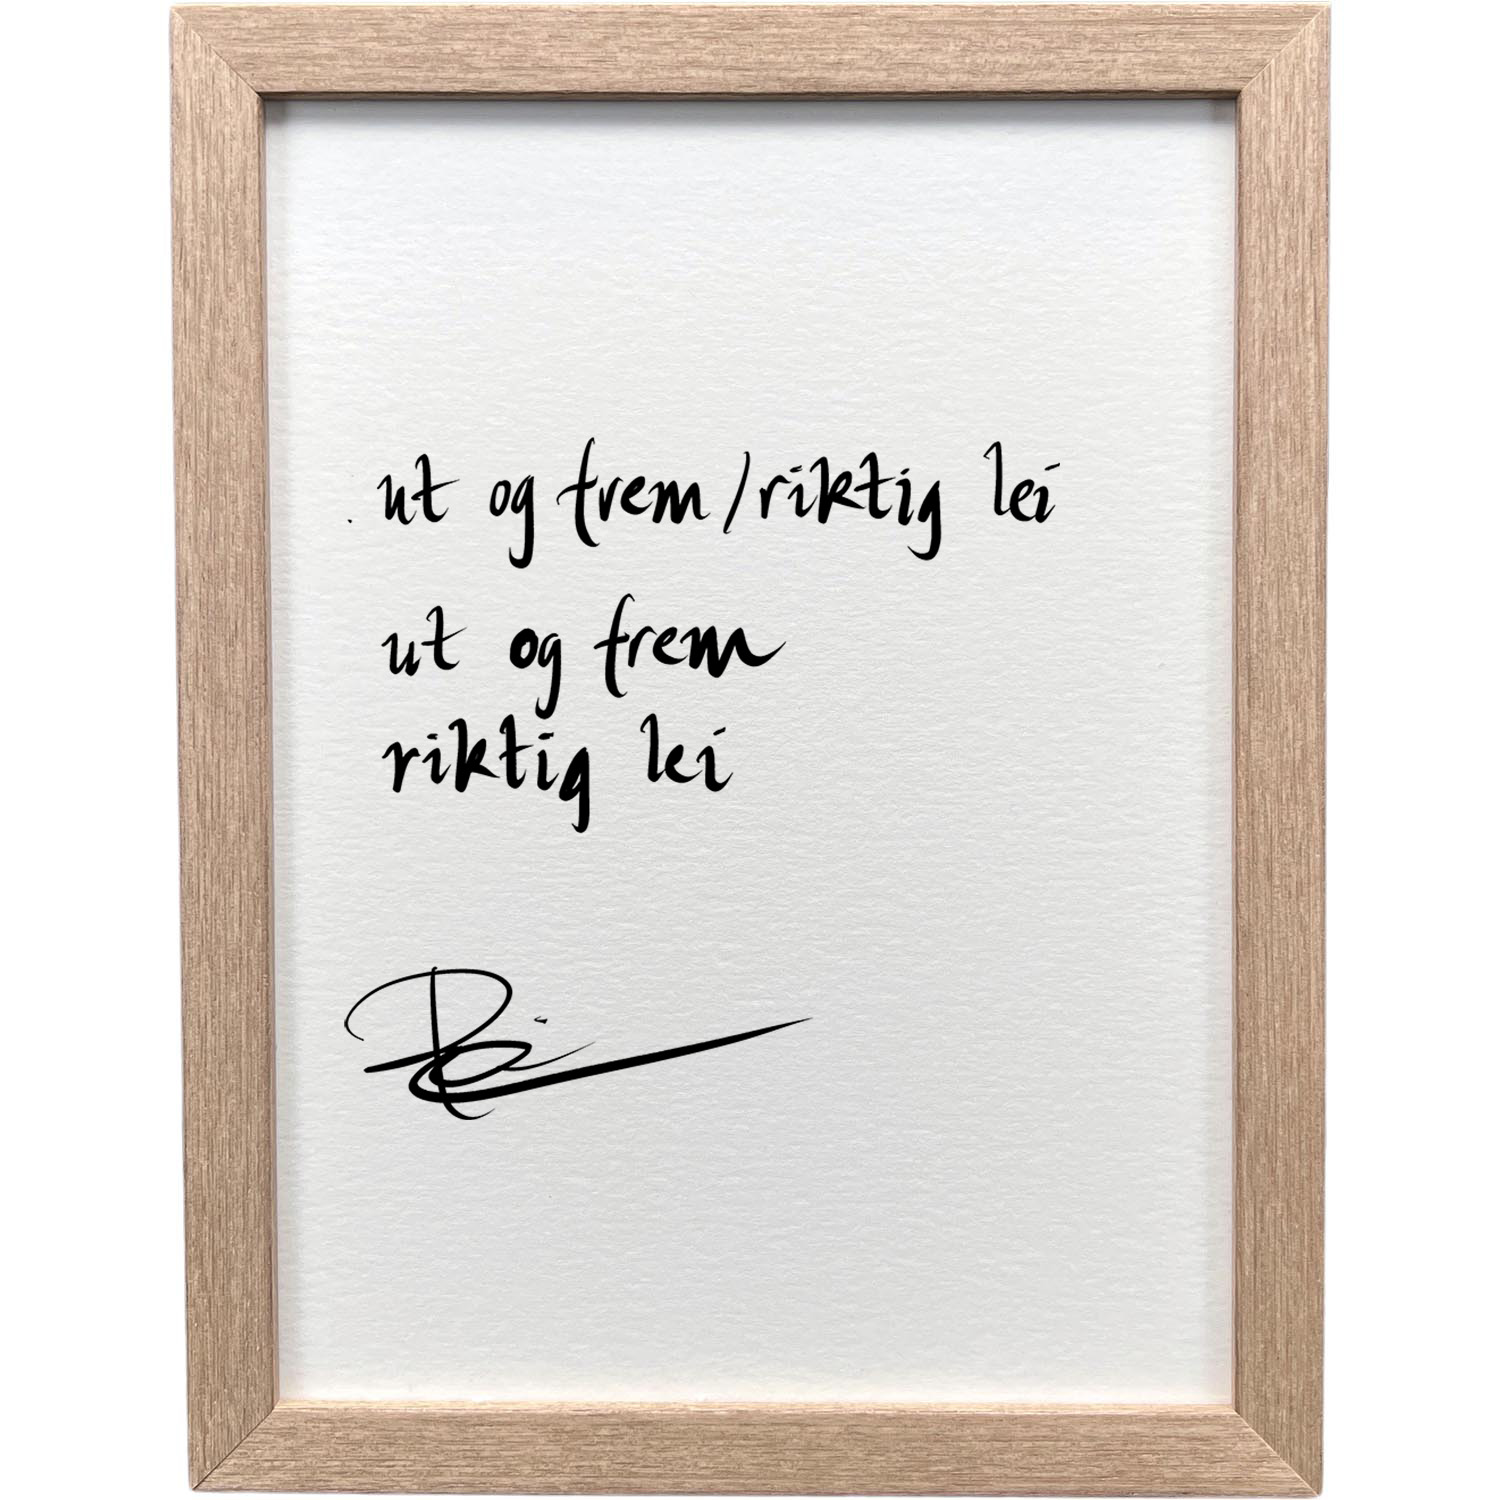 ut og frem/riktig lei
ut og frem
riktig lei